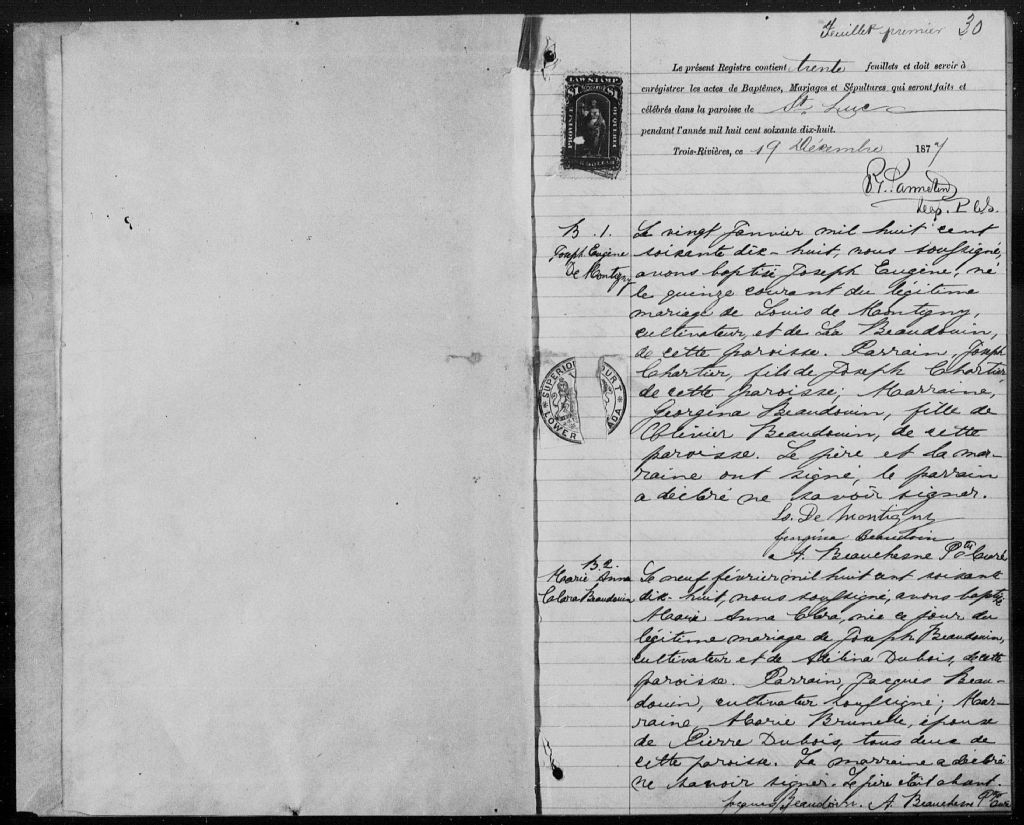 Feuillet premier 30
Le présent Registre contient trente feuillets et doit servir à
enrégistrer les actes de Baptêmes, Mariages et Sépultures qui seront faits et
célébrés dans la paroisse de St. Luc
pendant l'année mil huit cent soixante dix-huit.
Trois-Rivières, ce 19 Décembre 1877
LAW STAMP
PROVINCE
QUEBEC
DOLLAR
Dep. P.
B. 1.
Joseph Eugène
De Montigny
Le vingt Janvier mil huit cent
soixante dix-huit, nous soussigné,
avons baptisé Joseph Eugène, né
le quinze courant du légitime
mariage de Louis de Montigny,
cultivateur, et de Beaudouin,
de cette paroisse. Parrain, Joseph
Chartier, fils de Joseph Chartier
de cette paroisse; Marraine,
Georgina Beaudouin, fille de
Olivier Beaudouin, de cette
paroisse. Le père et la mar-
raine ont signé, le parrain
a déclaré ne savoir signer.
Ls. De Montigny
Georgina Beaudoin
A. Beauchesne Ptre Curé
SUPERIOR COURT
LOWER CANADA
B 2.
Marie Anna
Clara Beaudouin
Le neuf février mil huit cent soixante
dix-huit, nous soussigné, avons baptisé
Marie Anna Clara, née ce jour du
légitime mariage de Joseph Beaudouin,
cultivateur et de Adélina Dubois, de cette
paroisse. Parrain, Jacques Beau-
douin, cultivateur soussigné; Mar-
raine, Marie Brunelle, épouse
de Pierre Dubois, tous deux de
cette paroisse. La marraine a déclaré
ne savoir signer. Le père était absent.
Jacques Beaudoin. A. Beauchesne Ptre Curé